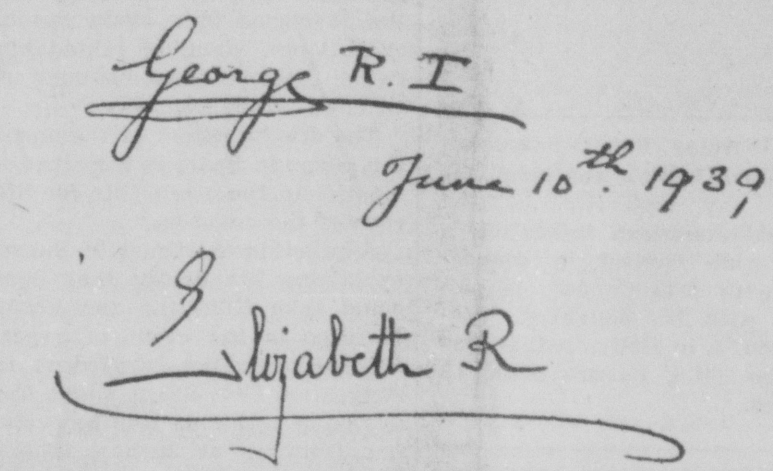 George R. I
June 10th. 1939
Elizabeth R